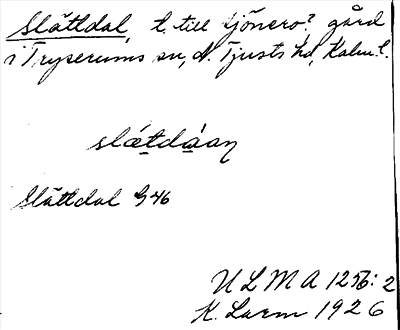 Slättdal, t. till Sjönero? gård
i Tryserums sn, N. Tjusts hd, Kalm. l.
slǽtdáan
Slättdal G46
ULMA 1256:2
K. Larm 1926